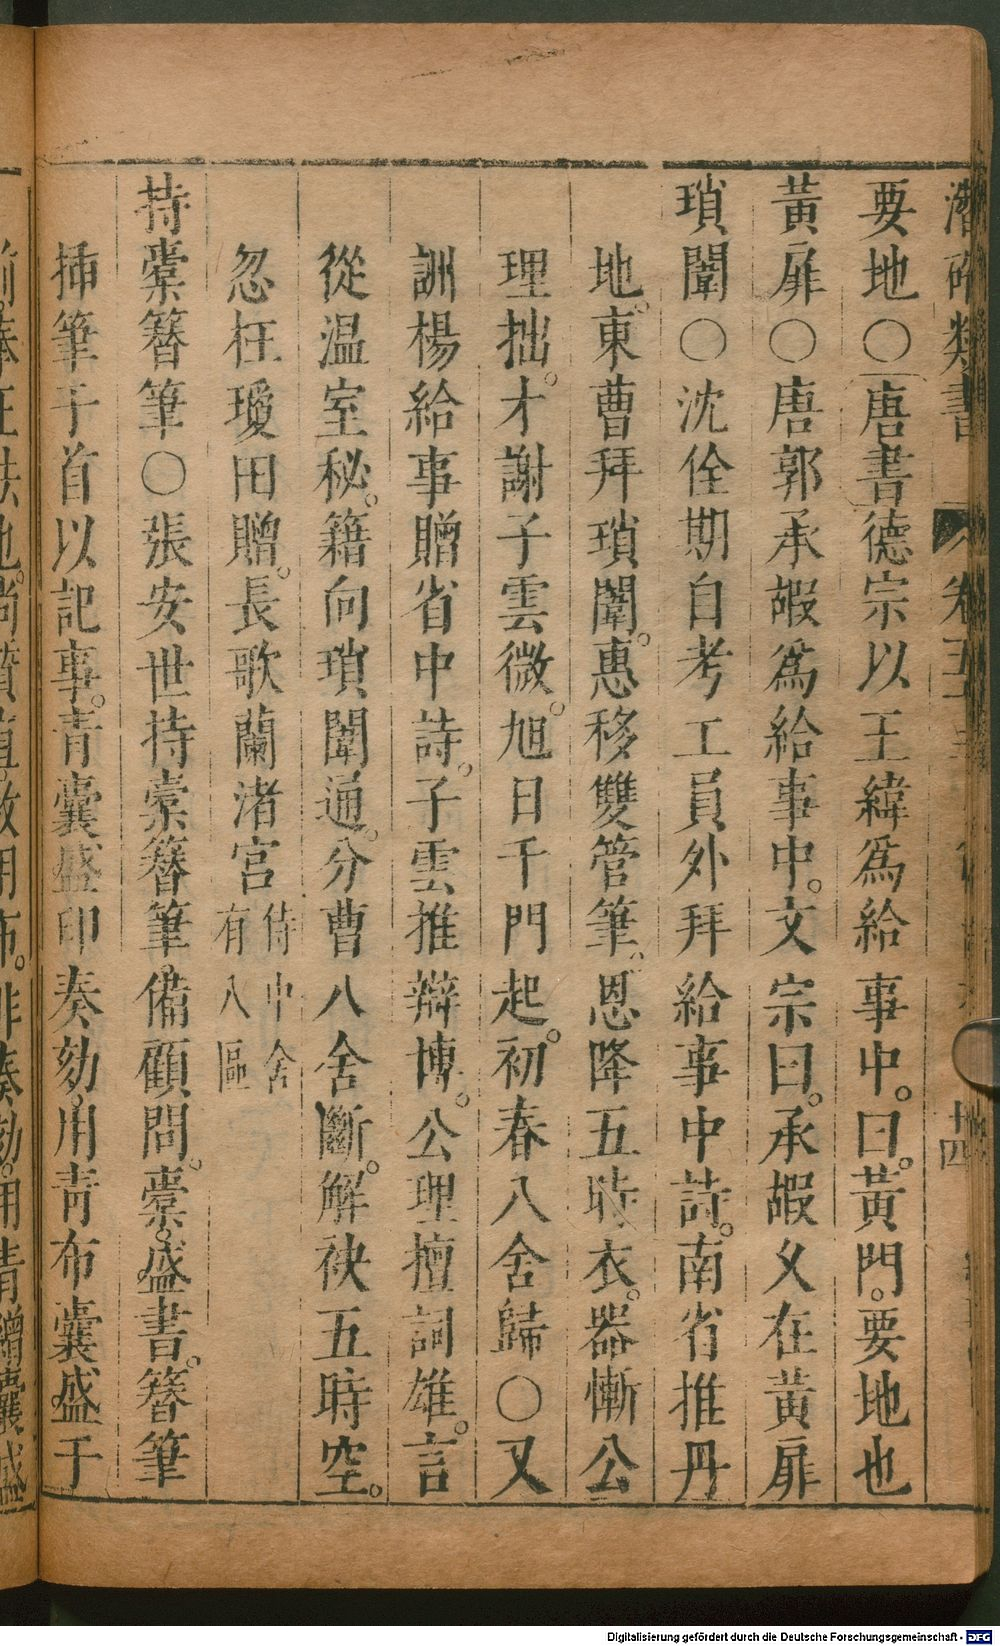 潛確類書 卷五十 十四
要地○唐書德宗以王緯爲給事中。曰。黃門。要地也
黃扉○唐郭承嘏爲給事中。文宗曰。承嘏乆在黃扉
瑣闈○沈佺期自考工員外拜給事中詩。南省推丹
地。東曹拜瑣闈。惠移雙管筆。恩降五時衣。器慚公
理拙。才謝子雲微。旭日千門起。初春八舍歸○又
詶楊給事贈省中詩。子雲推辯博。公理擅詞雄。言
從温室秘。籍向瑣闈通。分曹八舍斷。解袂五時空。
忽枉瓊田贈。長歌蘭渚宮侍中舍有八區
持橐簪筆○張安世持橐簪筆。備顧問。橐。盛書。簪筆
插筆于首以記事。青囊盛印奏劾。用青布囊盛于
Digitalisierung gefördert durch die Deutsche Forschungsgemeinschaft - DFG